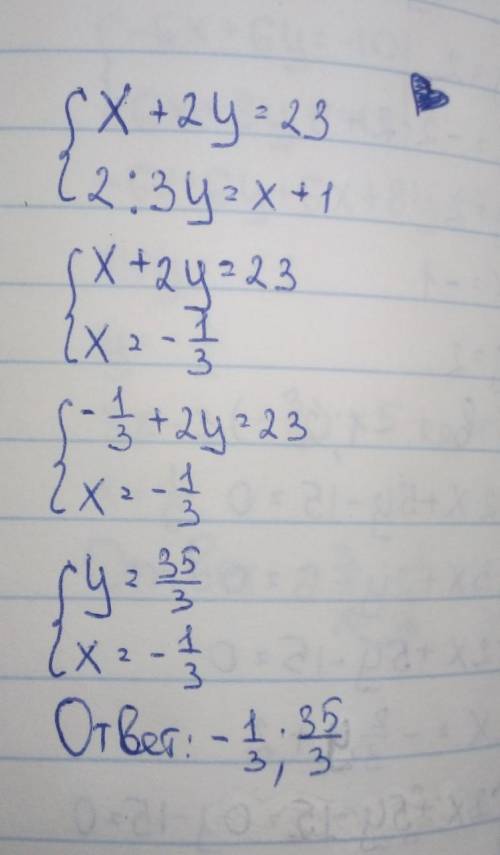 x + 2y = 23
2 : 3y = x + 1
x + 2y = 23
x = - 1/3
- 1/3 + 2y = 23
x = - 1/3
y = 35/3
x = - 1/3
Ответ: - 1/3 ; 35/3